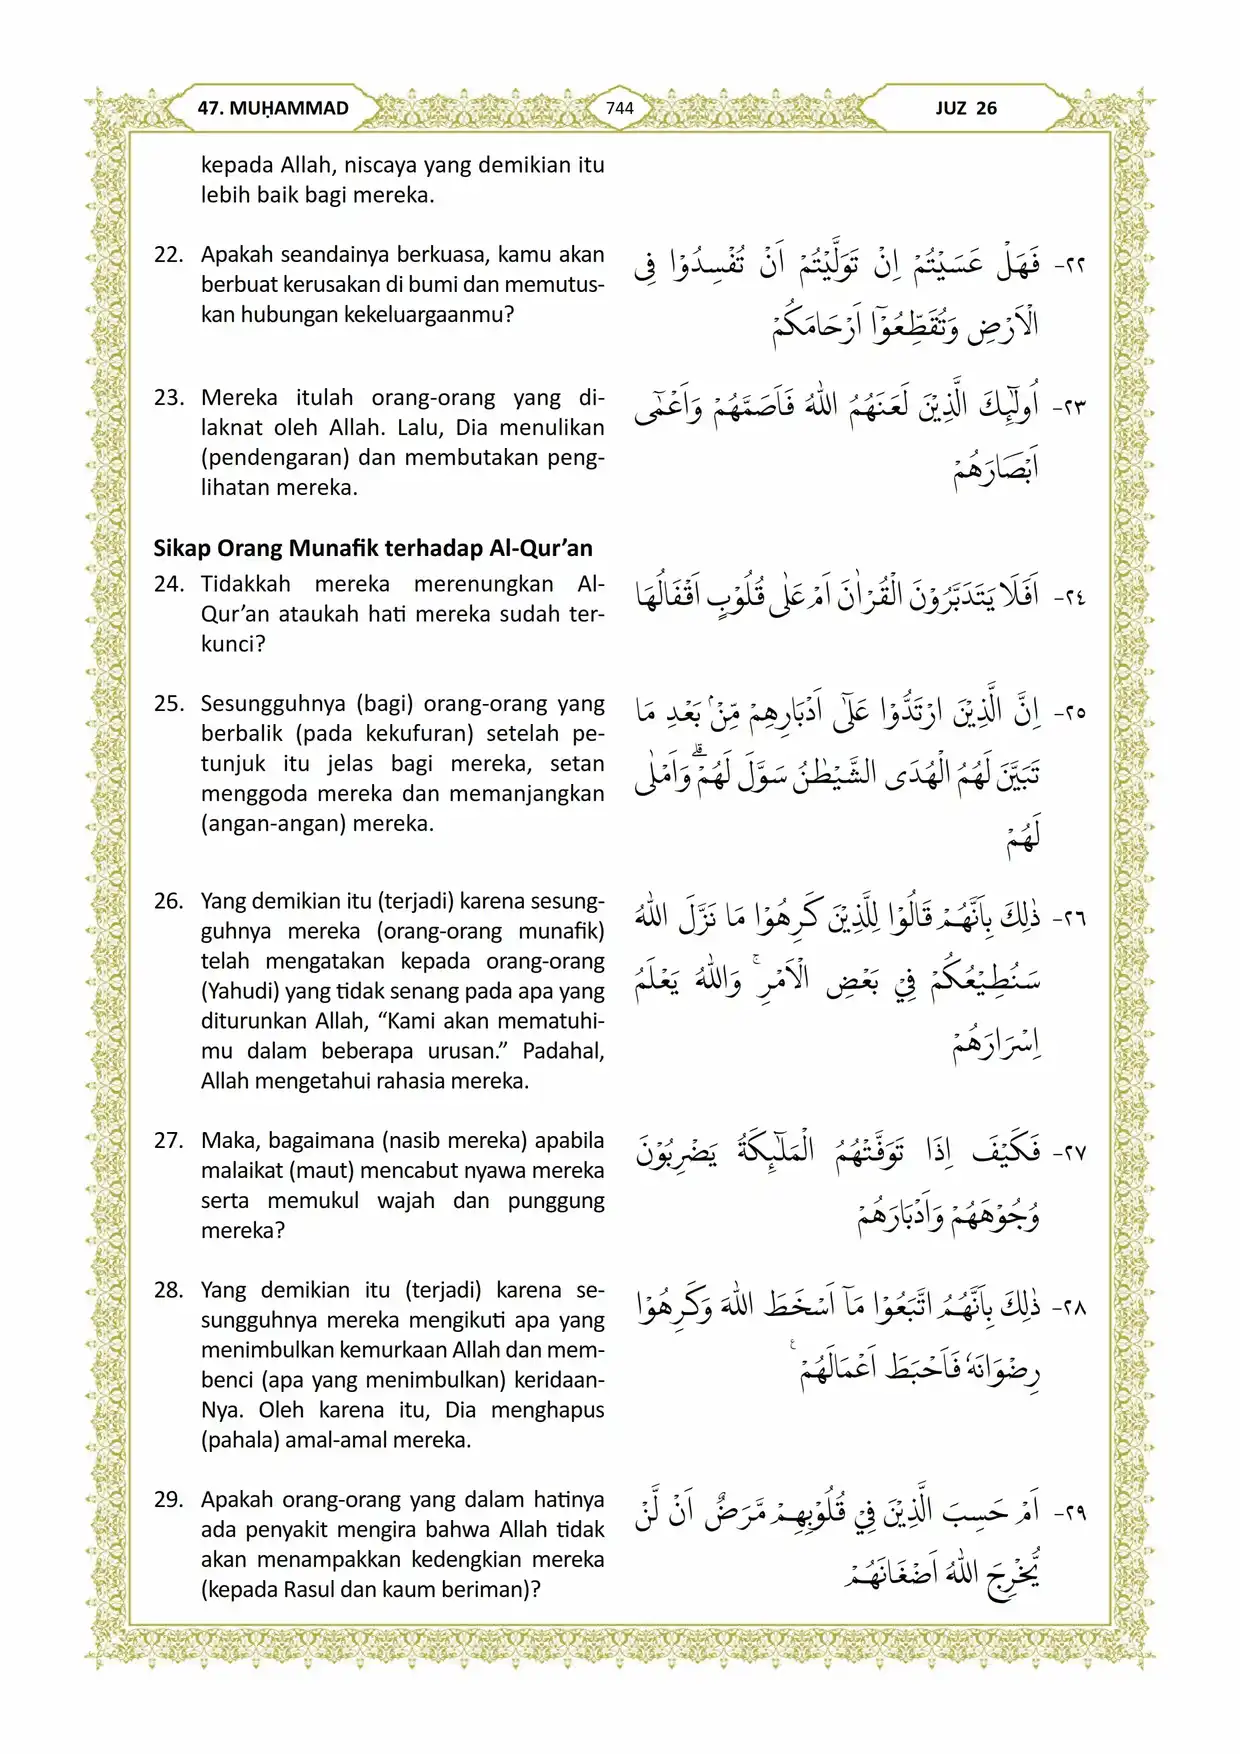 47. MUḤAMMAD
744
JUZ 26
kepada Allah, niscaya yang demikian itu
lebih baik bagi mereka.
22. Apakah seandainya berkuasa, kamu akan
berbuat kerusakan di bumi dan memutus-
kan hubungan kekeluargaanmu?
٢٢- فَهَلْ عَسَيْتُمْ اِنْ تَوَلَّيْتُمْ اَنْ تُفْسِدُوْا فِى
الْاَرْضِ وَتُقَطِّعُوْٓا اَرْحَامَكُمْ
23. Mereka itulah orang-orang yang di-
laknat oleh Allah. Lalu, Dia menulikan
(pendengaran) dan membutakan peng-
lihatan mereka.
٢٣- اُولٰۤىِٕكَ الَّذِيْنَ لَعَنَهُمُ اللّٰهُ فَاَصَمَّهُمْ وَاَعْمٰٓى
اَبْصَارَهُمْ
Sikap Orang Munafik terhadap Al-Qur’an
24. Tidakkah mereka merenungkan Al-
Qur’an ataukah hati mereka sudah ter-
kunci?
٢٤- اَفَلَا يَتَدَبَّرُوْنَ الْقُرْاٰنَ اَمْ عَلٰى قُلُوْبٍ اَقْفَالُهَا
25. Sesungguhnya (bagi) orang-orang yang
berbalik (pada kekufuran) setelah pe-
tunjuk itu jelas bagi mereka, setan
menggoda mereka dan memanjangkan
(angan-angan) mereka.
٢٥- اِنَّ الَّذِيْنَ ارْتَدُّوْا عَلٰٓى اَدْبَارِهِمْ مِّنْۢ بَعْدِ مَا
تَبَيَّنَ لَهُمُ الْهُدَى الشَّيْطٰنُ سَوَّلَ لَهُمْۗ وَاَمْلٰى
لَهُمْ
26. Yang demikian itu (terjadi) karena sesung-
guhnya mereka (orang-orang munafik)
telah mengatakan kepada orang-orang
(Yahudi) yang tidak senang pada apa yang
diturunkan Allah, “Kami akan mematuhi-
mu dalam beberapa urusan.” Padahal,
Allah mengetahui rahasia mereka.
٢٦- ذٰلِكَ بِاَنَّهُمْ قَالُوْا لِلَّذِيْنَ كَرِهُوْا مَا نَزَّلَ اللّٰهُ
سَنُطِيْعُكُمْ فِيْ بَعْضِ الْاَمْرِۚ وَاللّٰهُ يَعْلَمُ
اِسْرَارَهُمْ
27. Maka, bagaimana (nasib mereka) apabila
malaikat (maut) mencabut nyawa mereka
serta memukul wajah dan punggung
mereka?
٢٧- فَكَيْفَ اِذَا تَوَفَّتْهُمُ الْمَلٰۤىِٕكَةُ يَضْرِبُوْنَ
وُجُوْهَهُمْ وَاَدْبَارَهُمْ
28. Yang demikian itu (terjadi) karena se-
sungguhnya mereka mengikuti apa yang
menimbulkan kemurkaan Allah dan mem-
benci (apa yang menimbulkan) keridaan-
Nya. Oleh karena itu, Dia menghapus
(pahala) amal-amal mereka.
٢٨- ذٰلِكَ بِاَنَّهُمُ اتَّبَعُوْا مَآ اَسْخَطَ اللّٰهَ وَكَرِهُوْا
رِضْوَانَهٗ فَاَحْبَطَ اَعْمَالَهُمْ ࣖ
29. Apakah orang-orang yang dalam hatinya
ada penyakit mengira bahwa Allah tidak
akan menampakkan kedengkian mereka
(kepada Rasul dan kaum beriman)?
٢٩- اَمْ حَسِبَ الَّذِيْنَ فِيْ قُلُوْبِهِمْ مَّرَضٌ اَنْ لَّنْ
يُّخْرِجَ اللّٰهُ اَضْغَانَهُمْ